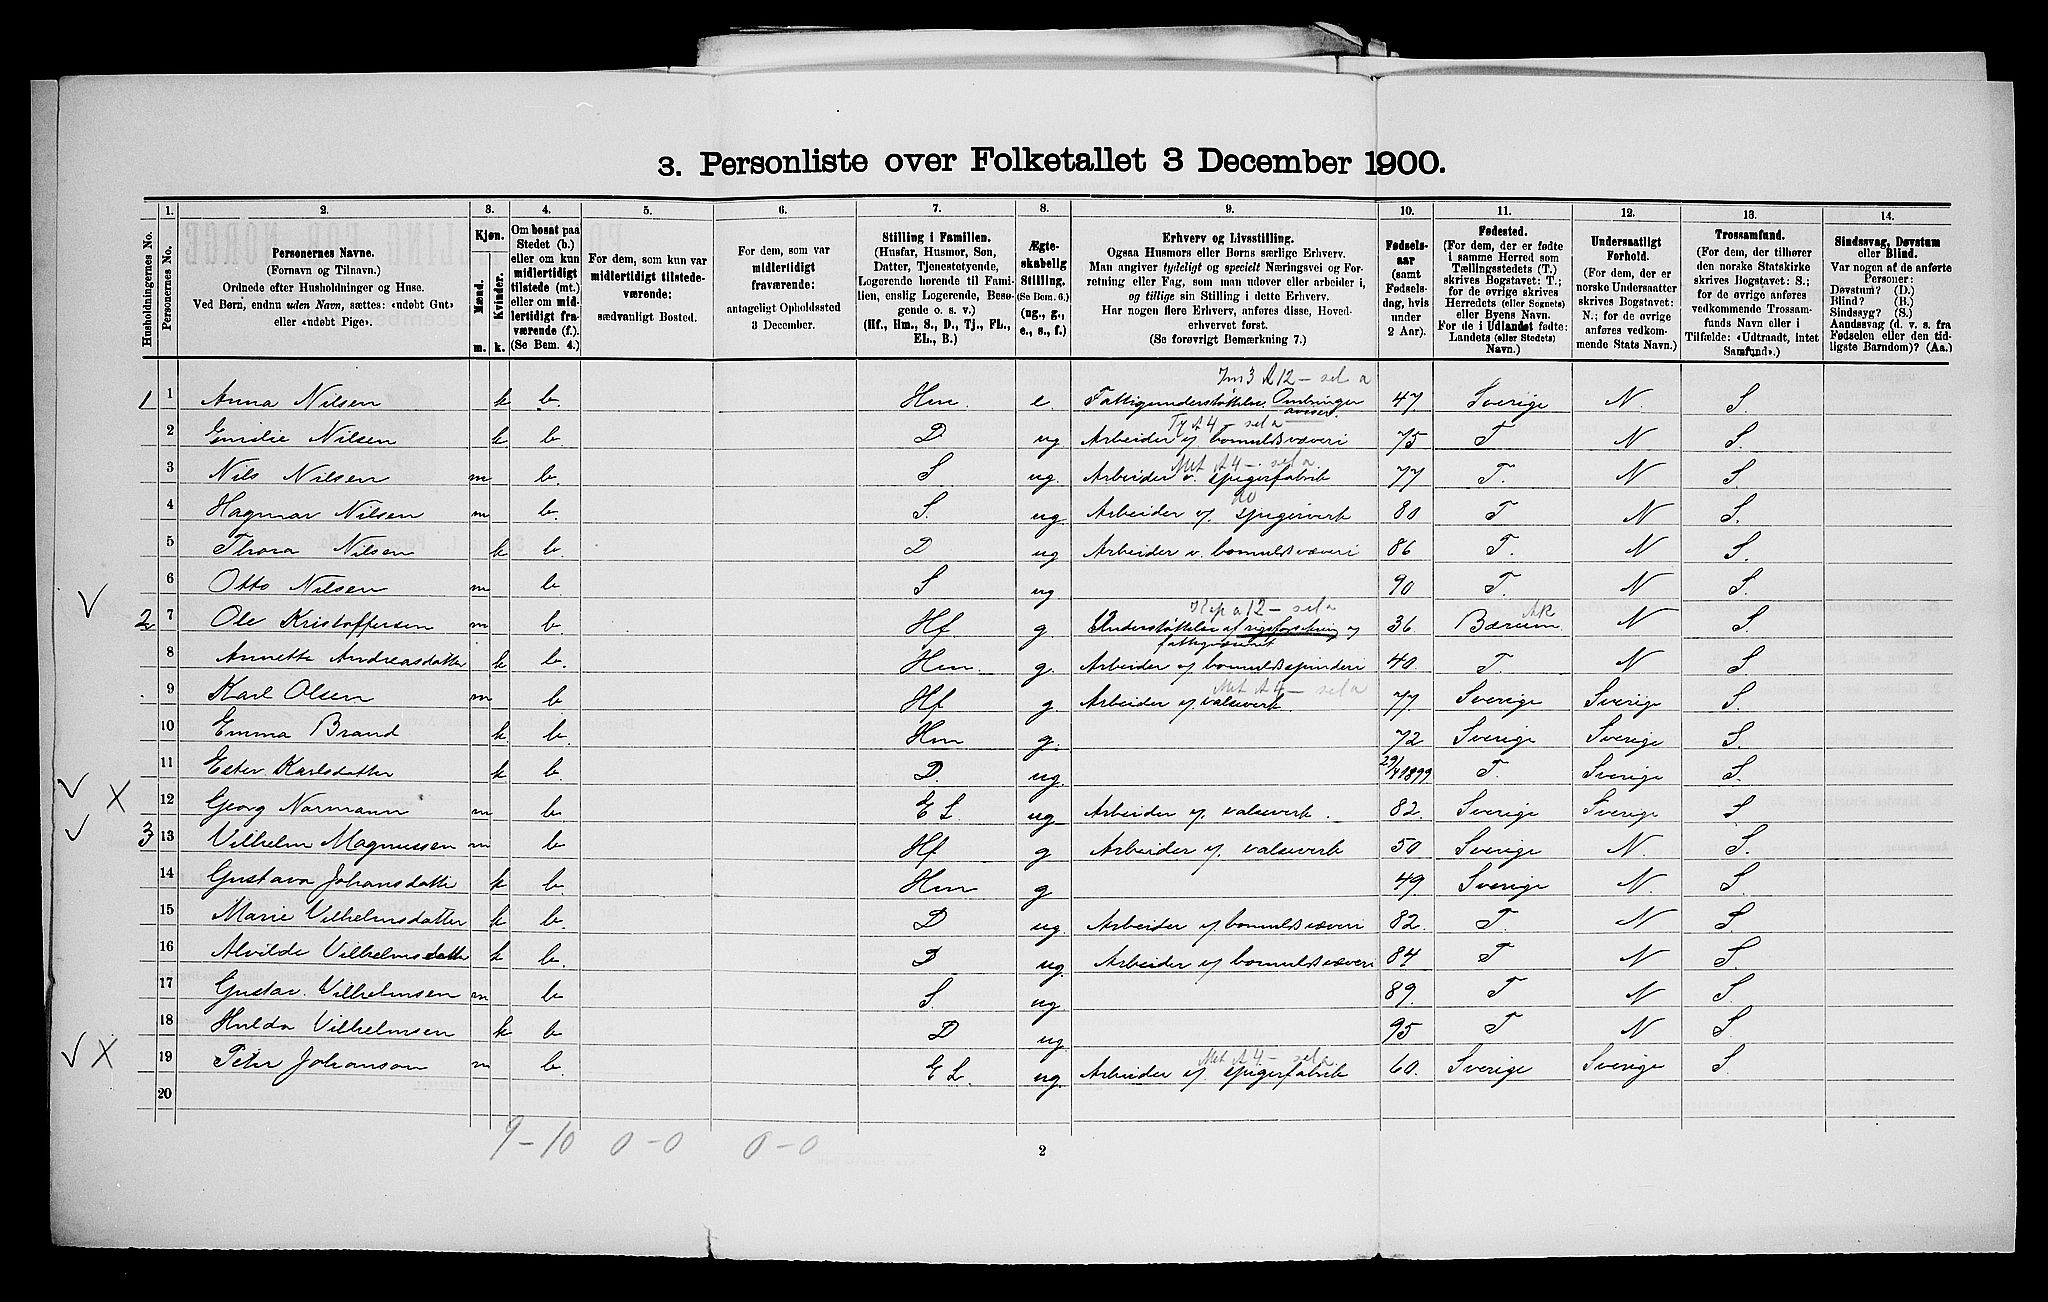 3. Personliste over Folketallet 3 December 1900.
Husholdningernes No.
1. Personernes No.
2. Personernes Navne.
(Fornavn og Tilnavn.)
Ordnede efter Husholdninger og Huse.
Ved Børn, endnu uden Navn, sættes: «udøbt Gut»
eller «udøbt Pige».
3. Kjøn.
Mænd. m.
Kvinder. k.
4. Om bosat paa
Stedet (b.)
eller om kun
midlertidigt
tilstede (mt.)
eller om mid-
lertidigt fra-
værende (f.).
(Se Bem. 4.)
5. For dem, som kun var
midlertidigt tilstede-
værende:
sædvanligt Bosted.
6. For dem, som var
midlertidigt
fraværende:
antageligt Opholdssted
3 December.
7. Stilling i Familien.
(Husfar, Husmor, Søn,
Datter, Tjenestetyende,
Logerende hørende til Fami-
lien, enslig Logerende, Besø-
gende o. s. v.)
(Hf., Hm., S., D., Tj., FL.,
EL., B.)
8. Ægte-
skabelig
Stilling.
(Se Bem. 6.)
(ug., g.,
e., s., f.)
9. Erhverv og Livsstilling.
Ogsaa Husmors eller Børns særlige Erhverv.
Man angiver tydeligt og specielt Næringsvei og For-
retning eller Fag, som man udover eller arbeider i,
og tillige sin Stilling i dette Erhverv.
Har nogen flere Erhverv, anføres disse, Hoved-
erhvervet først.
(Se forøvrigt Bemærkning 7.)
10. Fødsels-
aar
(samt
Fødsels-
dag, hvis
under
2 Aar).
11. Fødested.
(For dem, der er fødte
i samme Herred som
Tællingsstedets (T.)
skrives Bogstavet: T.;
for de øvrige skrives
Herredets (eller Sognets)
eller Byens Navn.
For de i Udlandet fødte:
Landets (eller Stedets)
Navn.)
12. Undersaatligt
Forhold.
(For dem, der er
norske Undersaatter
skrives Bogstavet:
N.; for de øvrige
anføres vedkom-
mende Stats Navn.)
13. Trossamfund.
(For dem, der tilhører
den norske Statskirke
skrives Bogstavet: S.;
for de øvrige anføres
vedkommende Trossam-
funds Navn eller i
Tilfælde: «Udtraadt, intet
Samfund».)
14. Sindssvag, Døvstum
eller Blind.
Var nogen af de anførte
Personer:
Døvstum? (D.)
Blind? (B.)
Sindssyg? (S.)
Aandssvag (d. v. s. fra
Fødselen eller den tid-
ligste Barndom)? (Aa.)
1 1 Anna Nilsen k b. Hm. e. Fattigunderstøttelse. Ombringer aviser. 47. Sverige N. S.
2 Emilie Nilsen k b. D ug Arbeider v bomuldsvæveri 75 T N S.
3 Nils Nilsen m b. S ug. Arbeider v. spigerfabrik 77 T. N S
4 Hagmar Nilsen m b. S. ug. Arbeider v. spigerverk 80 T N S.
5 Thora Nilsen k b. D ug Arbeider v. bomuldsvæveri 86 T. N S.
6 Otto Nilsen m b S ug 90 T. N S.
2 7 Ole Kristoffersen m b. Hf g Understøttelse af rigsforsikring og fattigvæsenet 36. Bærum AK N S
8 Annette Andreasdatter k b. Hm. g. Arbeider v bomuldsspinderi 40. T. N S.
9 Karl Olsen m b Hf g. Arbeider v. valseverk. 77. Sverige Sverige S.
10 Emma Brand k. b. Hm g. 72 Sverige Sverige S.
11 Ester Karlsdatter k b. D. ug. 29/4 1899 T. Sverige S.
12 Georg Normann m b. E L. ug Arbeider v. valseverk. 82. Sverige Sverige S
3 13 Vilhelm Magnussen m b Hf g Arbeider v. valseverk 50 Sverige N. S.
14 Gustava Johansdatter k b. Hm g 49. Sverige N. S.
15 Marie Vilhelmsdatter k b. D ug. Arbeider v bomuldsvæveri 82. T. N S.
16 Alvilde Vilhelmsdatter k b. D ug. Arbeider v bomuldsvæveri 84 T N S.
17 Gustav. Vilhelmsen m b S. ug 89. T N S.
18 Hulda Vilhelmsen k b D ug. 95 T N S
19 Peter Johanson m b. E L. ug. Arbeider v. spigerfabrik 60. Sverige Sverige S.
20
9-10 0-0 0-0
2